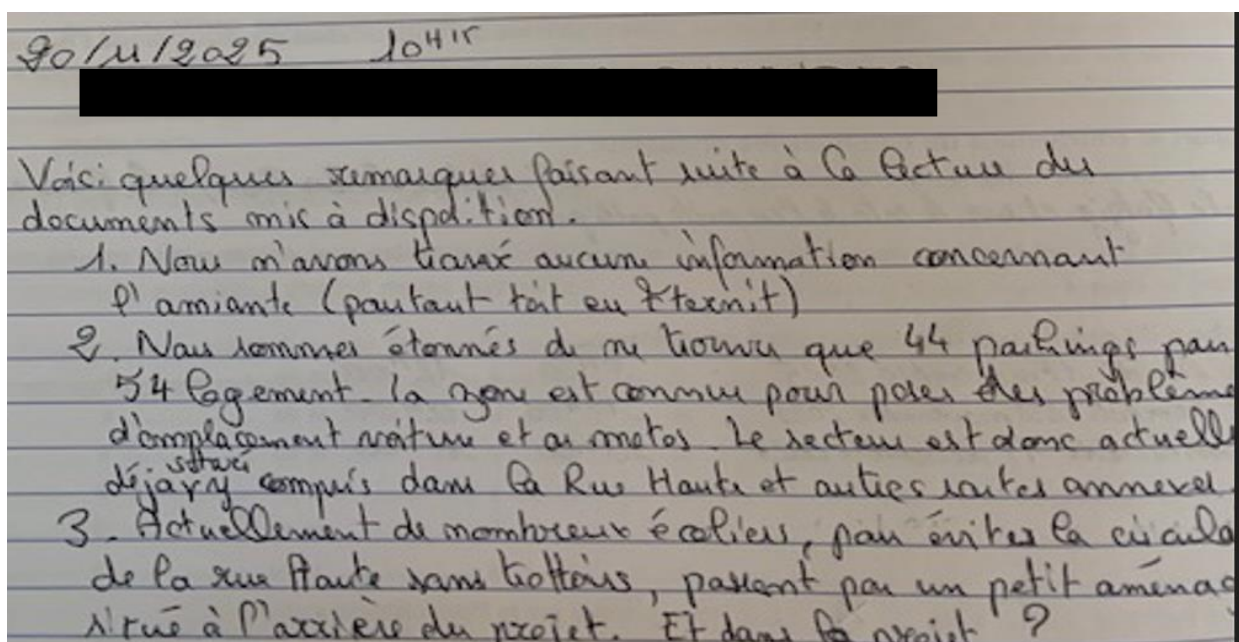 20/11/2025 10H15
Voici quelques remarques faisant suite à la lecture des
documents mis à disposition.
1. Nous n'avons trouvé aucune information concernant
l'amiante (pourtant toit en Eternit)
2. Nous sommes étonnés de ne trouver que 44 parkings pour
54 logement. la zone est connue pour poser des problème
d'emplacement voiture et ou motos. Le secteur est donc actuelle
déjà saturé y compris dans la Rue Haute et autres routes annexes
3. Actuellement de nombreux écoliers, pour éviter la circula
de la rue Haute sans trottoirs, passent par un petit aménag
situé à l'arrière du projet. Et dans le projet ?